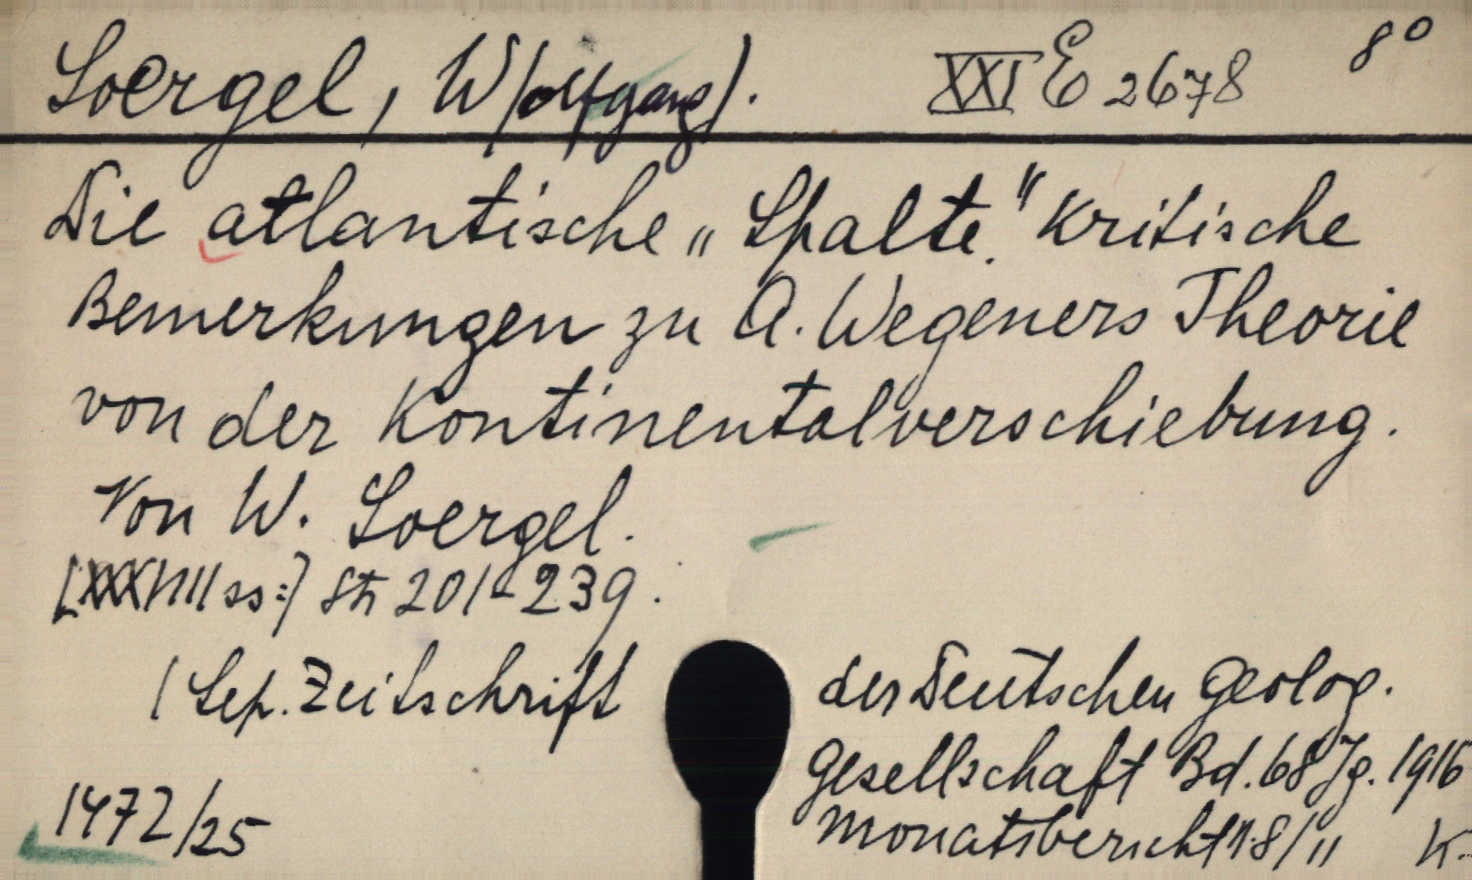 Soergel, W(olfgang). XXI E 2678 8°
Die atlantische „Spalte." Kritische
Bemerkungen zu A. Wegeners Theorie
von der Kontinentalverschiebung.
Von W. Soergel.
201-239.
(Sep. Zeitschrift der Deutschen Geolog.
Gesellschaft Bd. 68 Jg. 1916
Monatsbericht N. 8/11 K.
1472/25